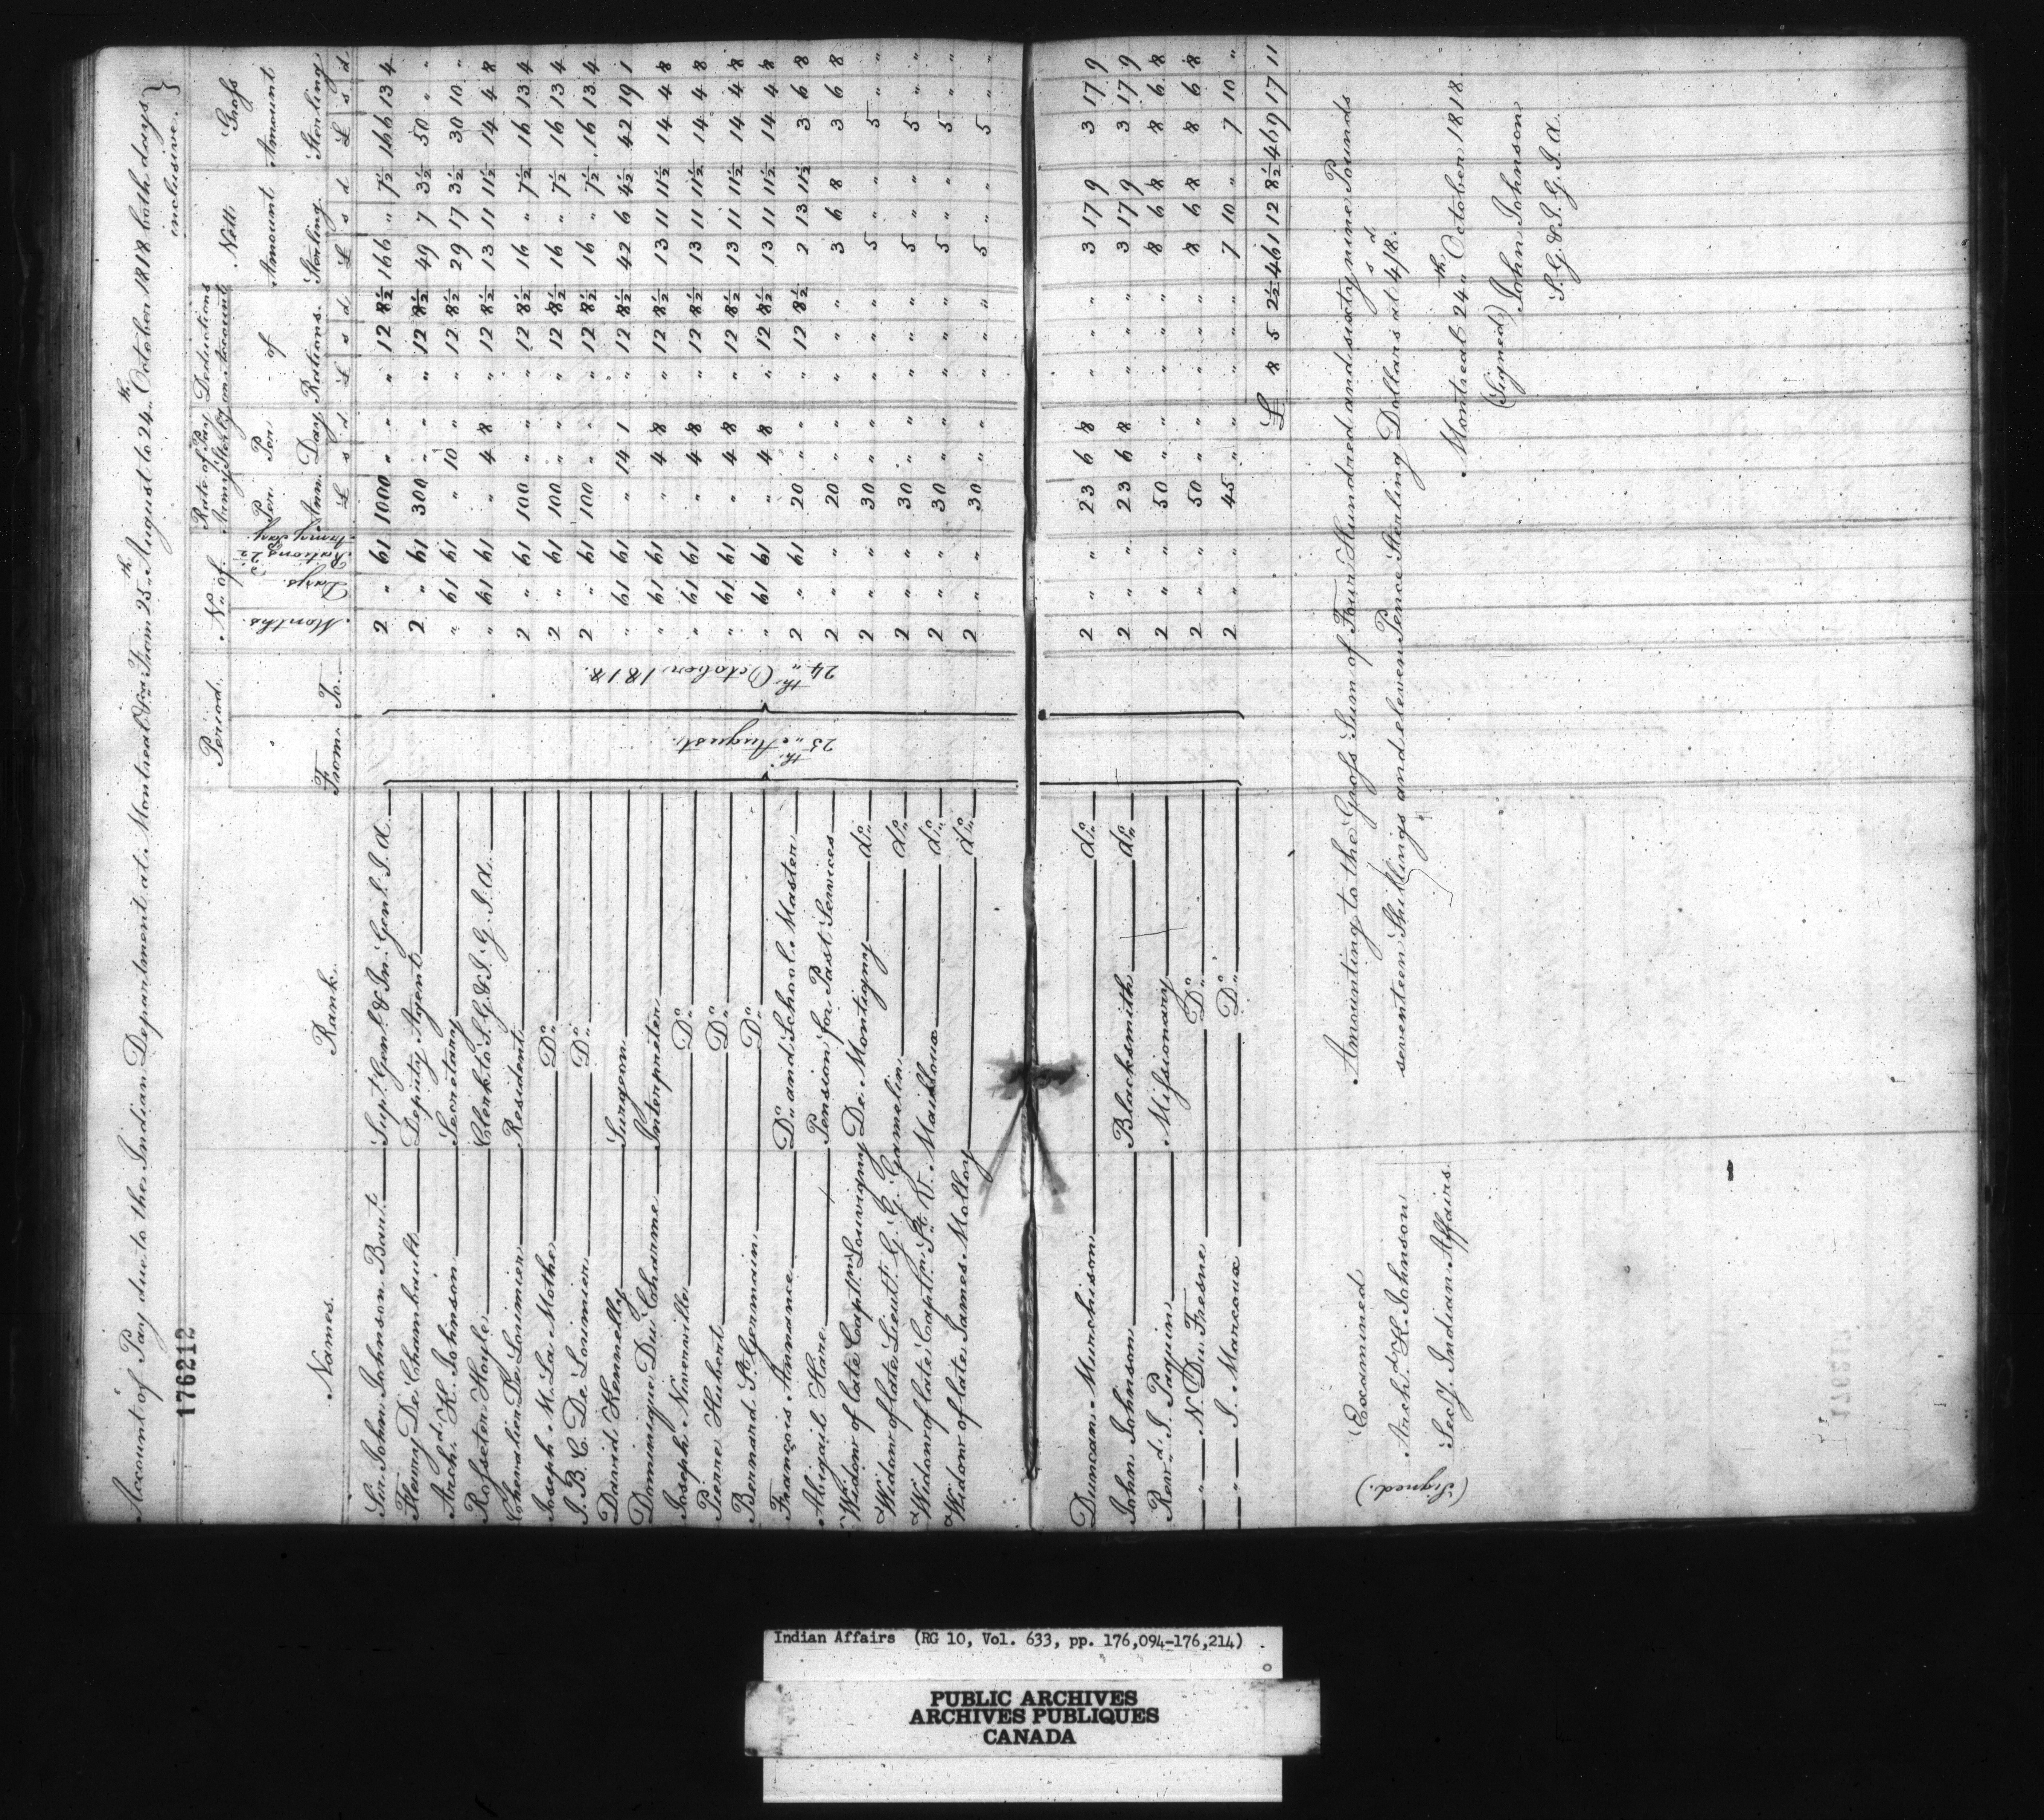 Account of Pay due to the Indian Department at Montreal &ca From 25th August to 24th October 1818 both days inclusive.
176212
Names. Rank. Period. From. To. No. of Months. Days. Rations @ 2½ Army Pay. Rate of Pay Army Sterlg Per Ann. £ Per Day s d Deductions on Account of Rations. £ s d Nett Amount Sterling £ s d Gross Amount Sterling £ s d
25th August. 24th October 1818.
Sir John Johnson Bart. Supt Genl & In. Genl I. A. 2 " 61 1000 " " " 12 8½ 166 " 7½ 166 13 4
Henry De Chambault Deputy Agent 2 " 61 300 " " " 12 8½ 49 7 3½ 50 " "
Archd K. Johnson Secretary " 61 61 " 10 " " 12 8½ 29 17 3½ 30 10 "
Rosseter Hoyle Clerk to S. G. & I. G. I. A. " 61 61 " 4 8 " 12 8½ 13 11 11½ 14 4 8
Chevalier De Lorimier Resident 2 " 61 100 " " " 12 8½ 16 " 7½ 16 13 4
Joseph M. La Mothe Do 2 " 61 100 " " " 12 8½ 16 " 7½ 16 13 4
J. B. C. De Lorimier Do 2 " 61 100 " " " 12 8½ 16 " 7½ 16 13 4
David Kennelly Surgeon " 61 61 " 14 1 " 12 8½ 42 6 4½ 42 19 1
Dominique Du Charme Interpreter " 61 61 " 4 8 " 12 8½ 13 11 11½ 14 4 8
Joseph Niverville Do " 61 61 " 4 8 " 12 8½ 13 11 11½ 14 4 8
Pierre Hubert Do " 61 61 " 4 8 " 12 8½ 13 11 11½ 14 4 8
Bernard St. Germain Do " 61 61 " 4 8 " 12 8½ 13 11 11½ 14 4 8
François Annance Do and School Master 2 " 61 20 " " " 12 8½ 2 13 11½ 3 6 8
Abigail Hare Pension for Past Services 2 " " 20 " " " " " 3 6 8 3 6 8
Widow of late Captn Louvigny De Montigny do 2 " " 30 " " " " " 5 " " 5 " "
Widow of late Lieut. G. G. Gamelin do 2 " " 30 " " " " " 5 " " 5 " "
Widow of late Captn St. V. Mailloux do 2 " " 30 " " " " " 5 " " 5 " "
Widow of late James Molloy do 2 " " 30 " " " " " 5 " " 5 " "
Duncan Murchison do 2 " " 23 6 8 " " " 3 17 9 3 17 9
John Johnson Blacksmith do 2 " " 23 6 8 " " " 3 17 9 3 17 9
Revd J. Paquin Missionary 2 " " 50 " " " " " 8 6 8 8 6 8
" N. Du Fresne Do 2 " " 50 " " " " " 8 6 8 8 6 8
" J. Marcoux Do 2 " " 45 " " " " " 7 10 " 7 10 "
£ 8 5 2½ 461 12 8½ 469 17 11
Amounting to the Gross Sum of Four Hundred and sixty nine Pounds
seventeen Shillings and eleven Pence Sterling Dollars at 4s/8d.
Montreal 24th October 1818
(Signed) John Johnson
S. G. & I. G. I. A.
Examined
(Signed.) Archd K. Johnson
Secy. Indian Affairs.
Indian Affairs (RG 10, Vol. 633, pp. 176,094-176,214)
PUBLIC ARCHIVES
ARCHIVES PUBLIQUES
CANADA